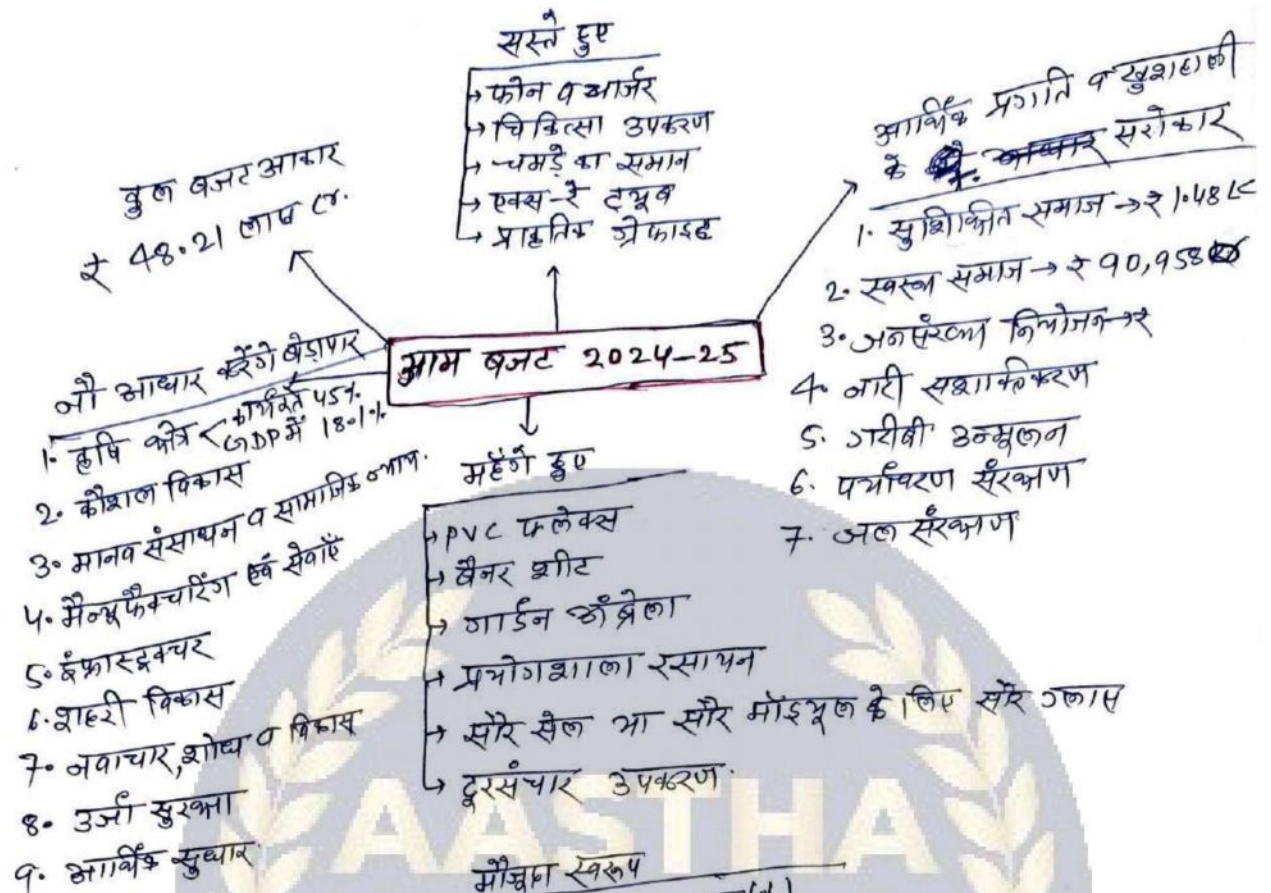 सस्ते हुए
→ फोन व चार्जर
→ चिकित्सा उपकरण
→ चमड़े का समान
→ एक्स-रे ट्यूब
→ प्राकृतिक ग्रेफाइट
कुल बजट आकार
₹ 48.21 लाख Cr.
आर्थिक प्रगति व खुशहाली
के सरोकार
1. सुशिक्षित समाज → ₹ 1.48 L
2. स्वस्थ समाज → ₹ 90,958
3. जनसंख्या नियोजन → ₹
4. नारी सशक्तिकरण
5. गरीबी उन्मूलन
6. पर्यावरण संरक्षण
7. जल संरक्षण
आम बजट 2024-25
नौ आधार करेंगे बेड़ापार
1. कृषि क्षेत्र < कार्यरत 45%
GDP में 18.1%
2. कौशल विकास
3. मानव संसाधन व सामाजिक न्याय.
4. मैन्युफैक्चरिंग एवं सेवाएँ
5. इंफ्रास्ट्रक्चर
6. शहरी विकास
7. नवाचार, शोध व विकास
8. उर्जा सुरक्षा
9. आर्थिक सुधार
महँगे हुए
→ PVC फ्लेक्स
→ बैनर शीट
→ गार्डन अंब्रेला
→ प्रयोगशाला रसायन
→ सौर सेल या सौर मॉड्यूल के लिए सौर ग्लास
→ दूरसंचार उपकरण.
AASTHA
मौजूदा स्वरूप